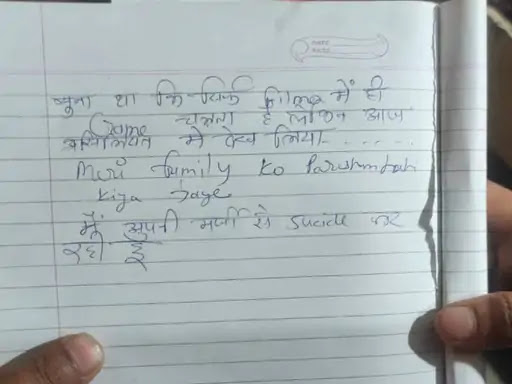 सुना था कि सिर्फ films में ही
Crime चलता है लेकिन आज
असलियत में देख लिया. . . . . .
Meri family ko Pareshan nah
kiya Jaye
मैं अपनी मर्जी से sucide कर
रही हूँ